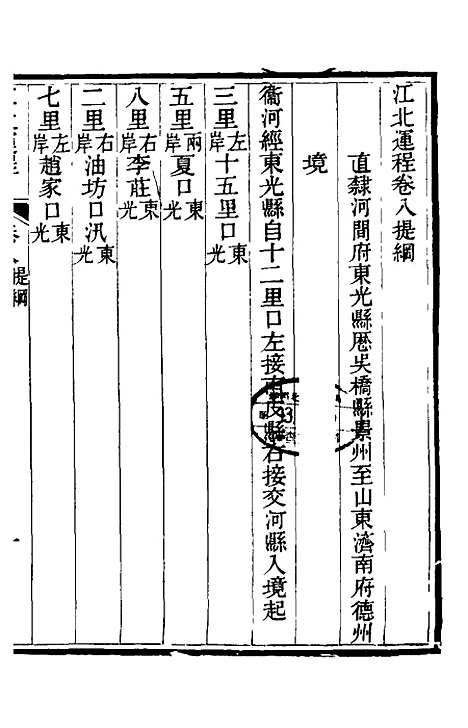 江北運程卷八提綱
直隸河間府東光縣歷吳橋縣景州至山東濟南府德州
境
衞河經東光縣自十二里口左接南皮縣右接交河縣入境起
三里左岸十五里口東光
五里兩岸夏口東光
八里右岸李莊東光
二里右岸油坊口汛東光
七里左岸趙家口東光
卷八提綱
一